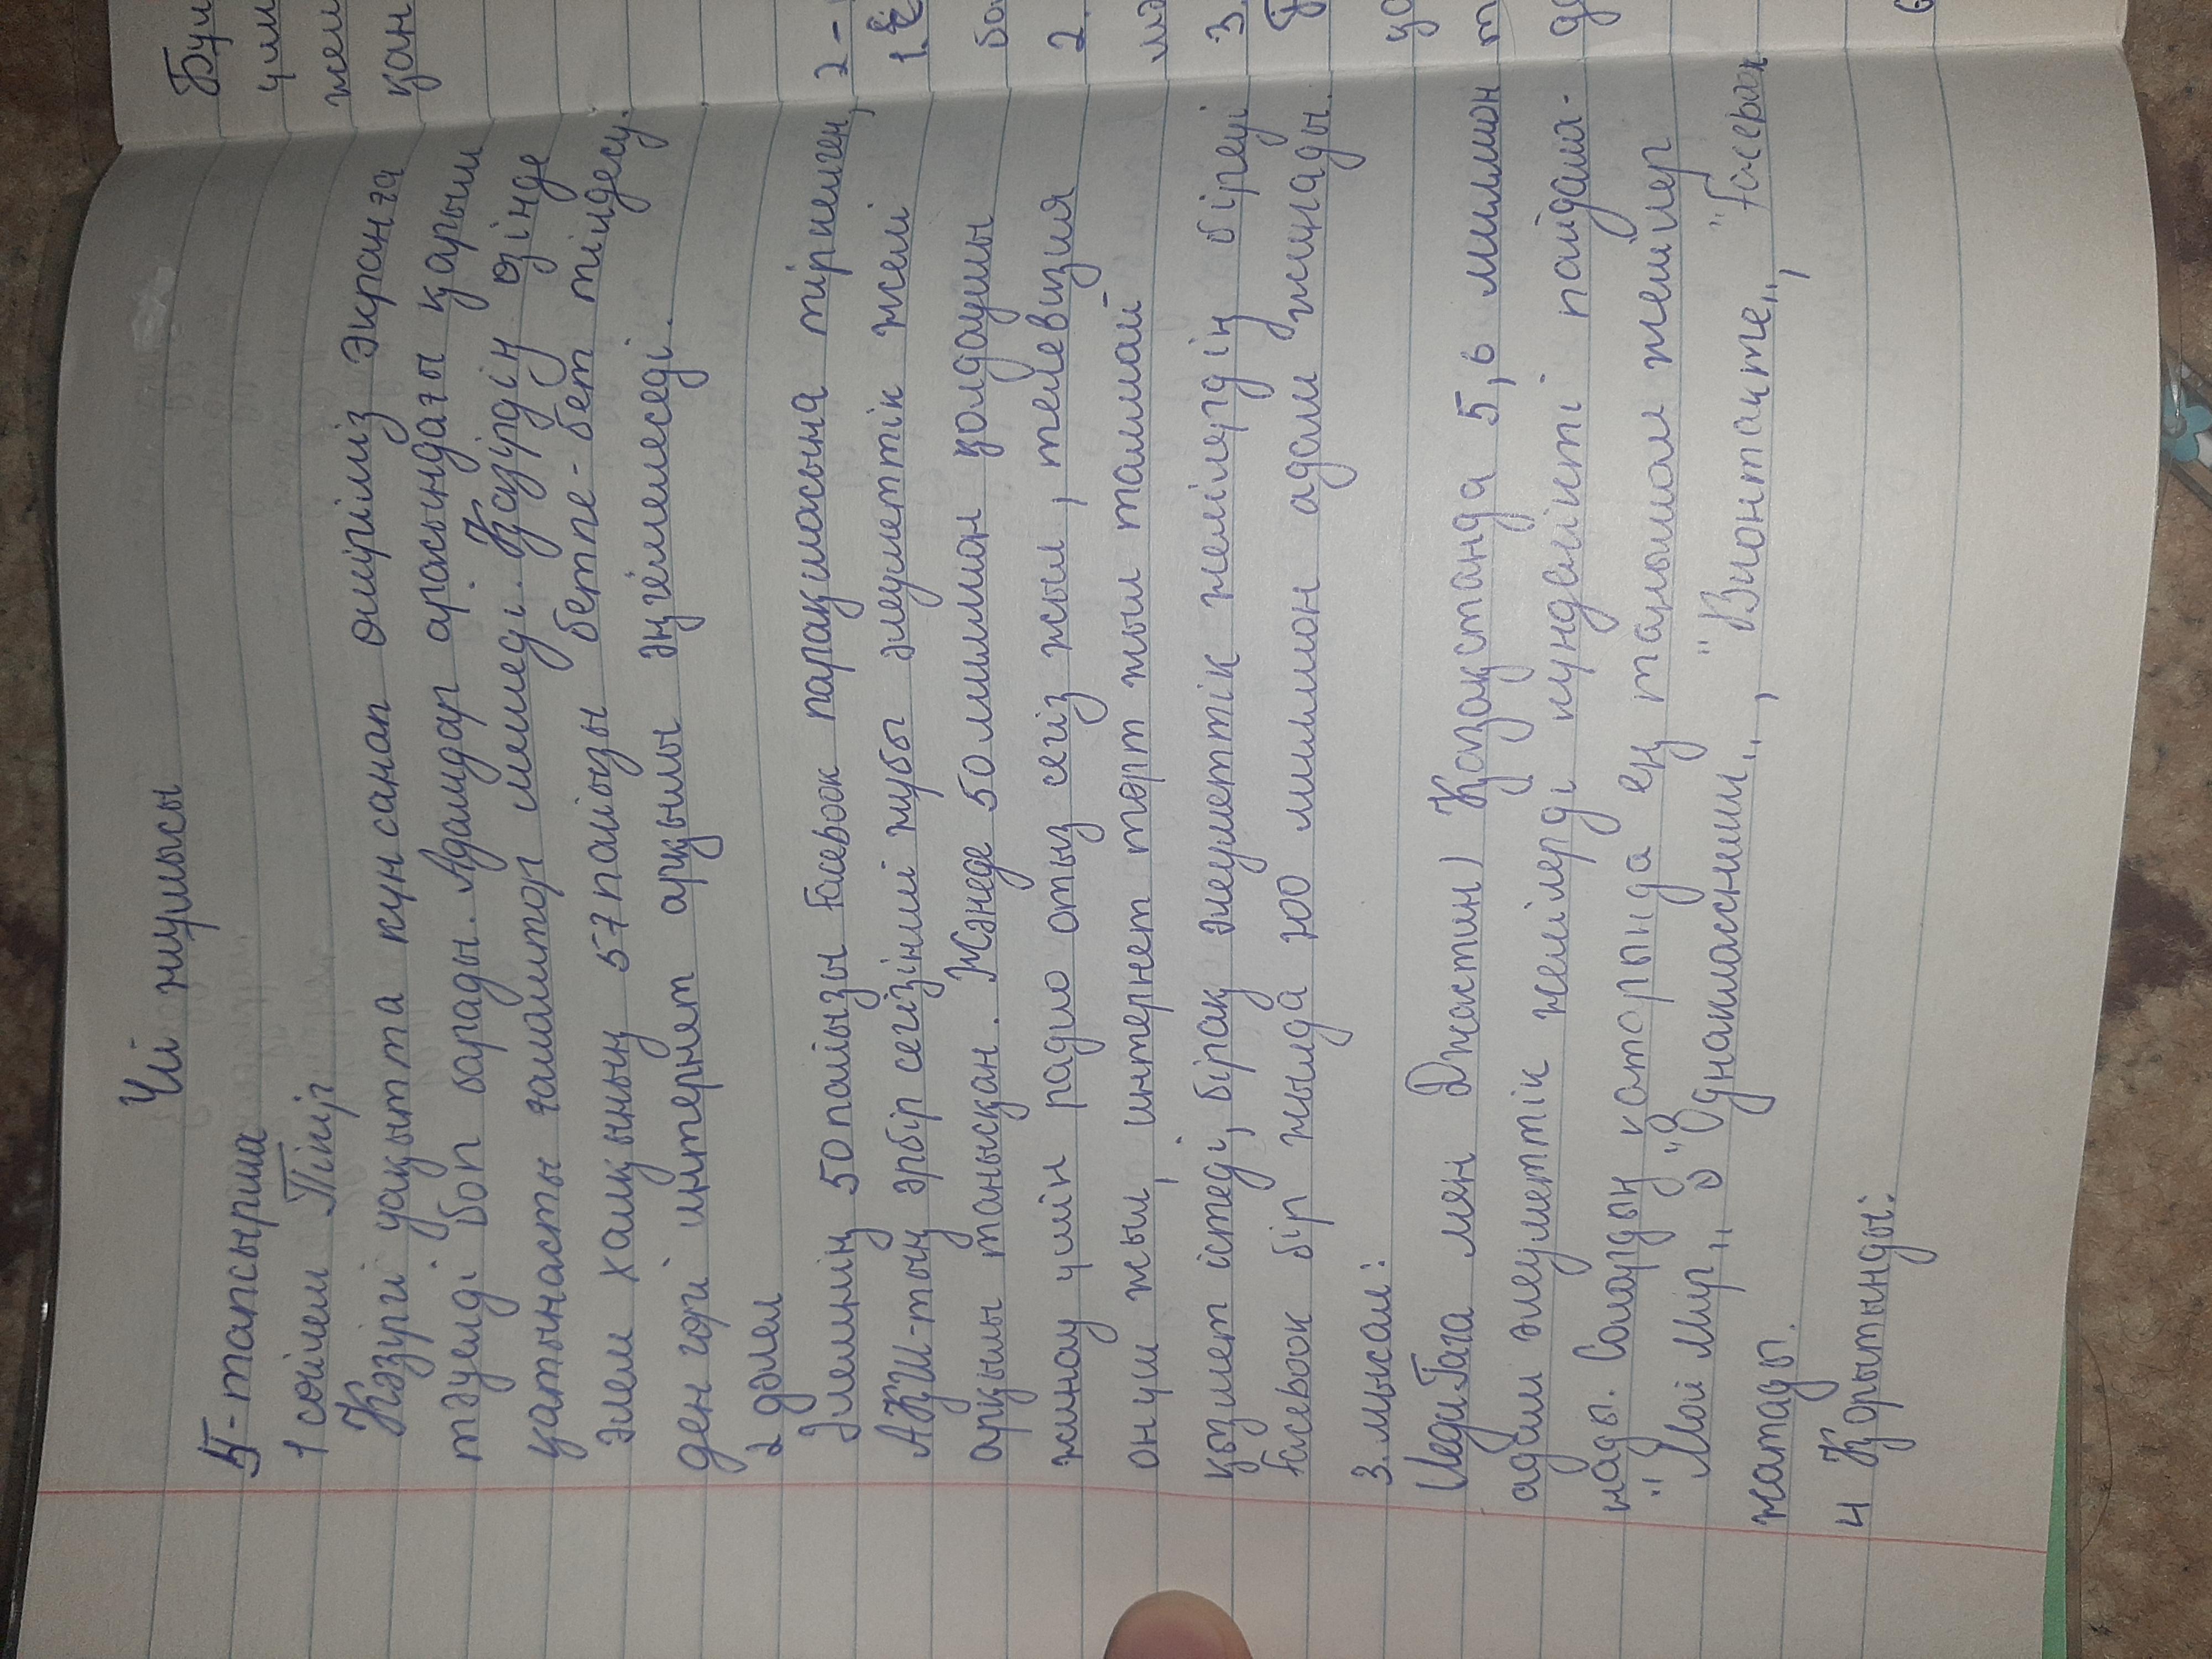 Үй жұмысы
5-тапсырма
1 сөйлем Пікір
Кәзүргі уақытта күн санап өміріміз экранға
тәуелді боп барады. Адамдар арасындағы қарым
қатынасты ғаламтор шешеді. Қазүрдің өзінде
әлем халқының 57 пайызы бетпе-бет тілдесу.
ден горі интернет арқылы әңгімелеседі.
2 дәлел
Әлемнің 50 пайызы Facebook парақшасына тіркелген,
АҚШ-тың әрбір сегізінші жұбы әлеуметтік желі
арқылы танысқан. Жәнеде 50 миллион қолдаушы
жинау үшін радио отыз сегіз жыл, телевизия
он үш жыл, интернет төрт жыл талмай
қызмет істеді, бірақ әлеуметтік желілердің бірегейі
Facebook бір жылда 100 миллион адам жинады.
3. мысал:
Леди Гага мен Джастин) Қазақстанда 5,6 миллион
адам әлеуметтік желілерді күнделікті пайдала-
нады. Солардың қаторында ең танымал желілер
"Мой мир", "Одноклассники", "Вконтакте", "Facebook
жатады.
4 Қорытынды:
Бұл
үші
жел
қан
2-
1.
бо
2.
3.